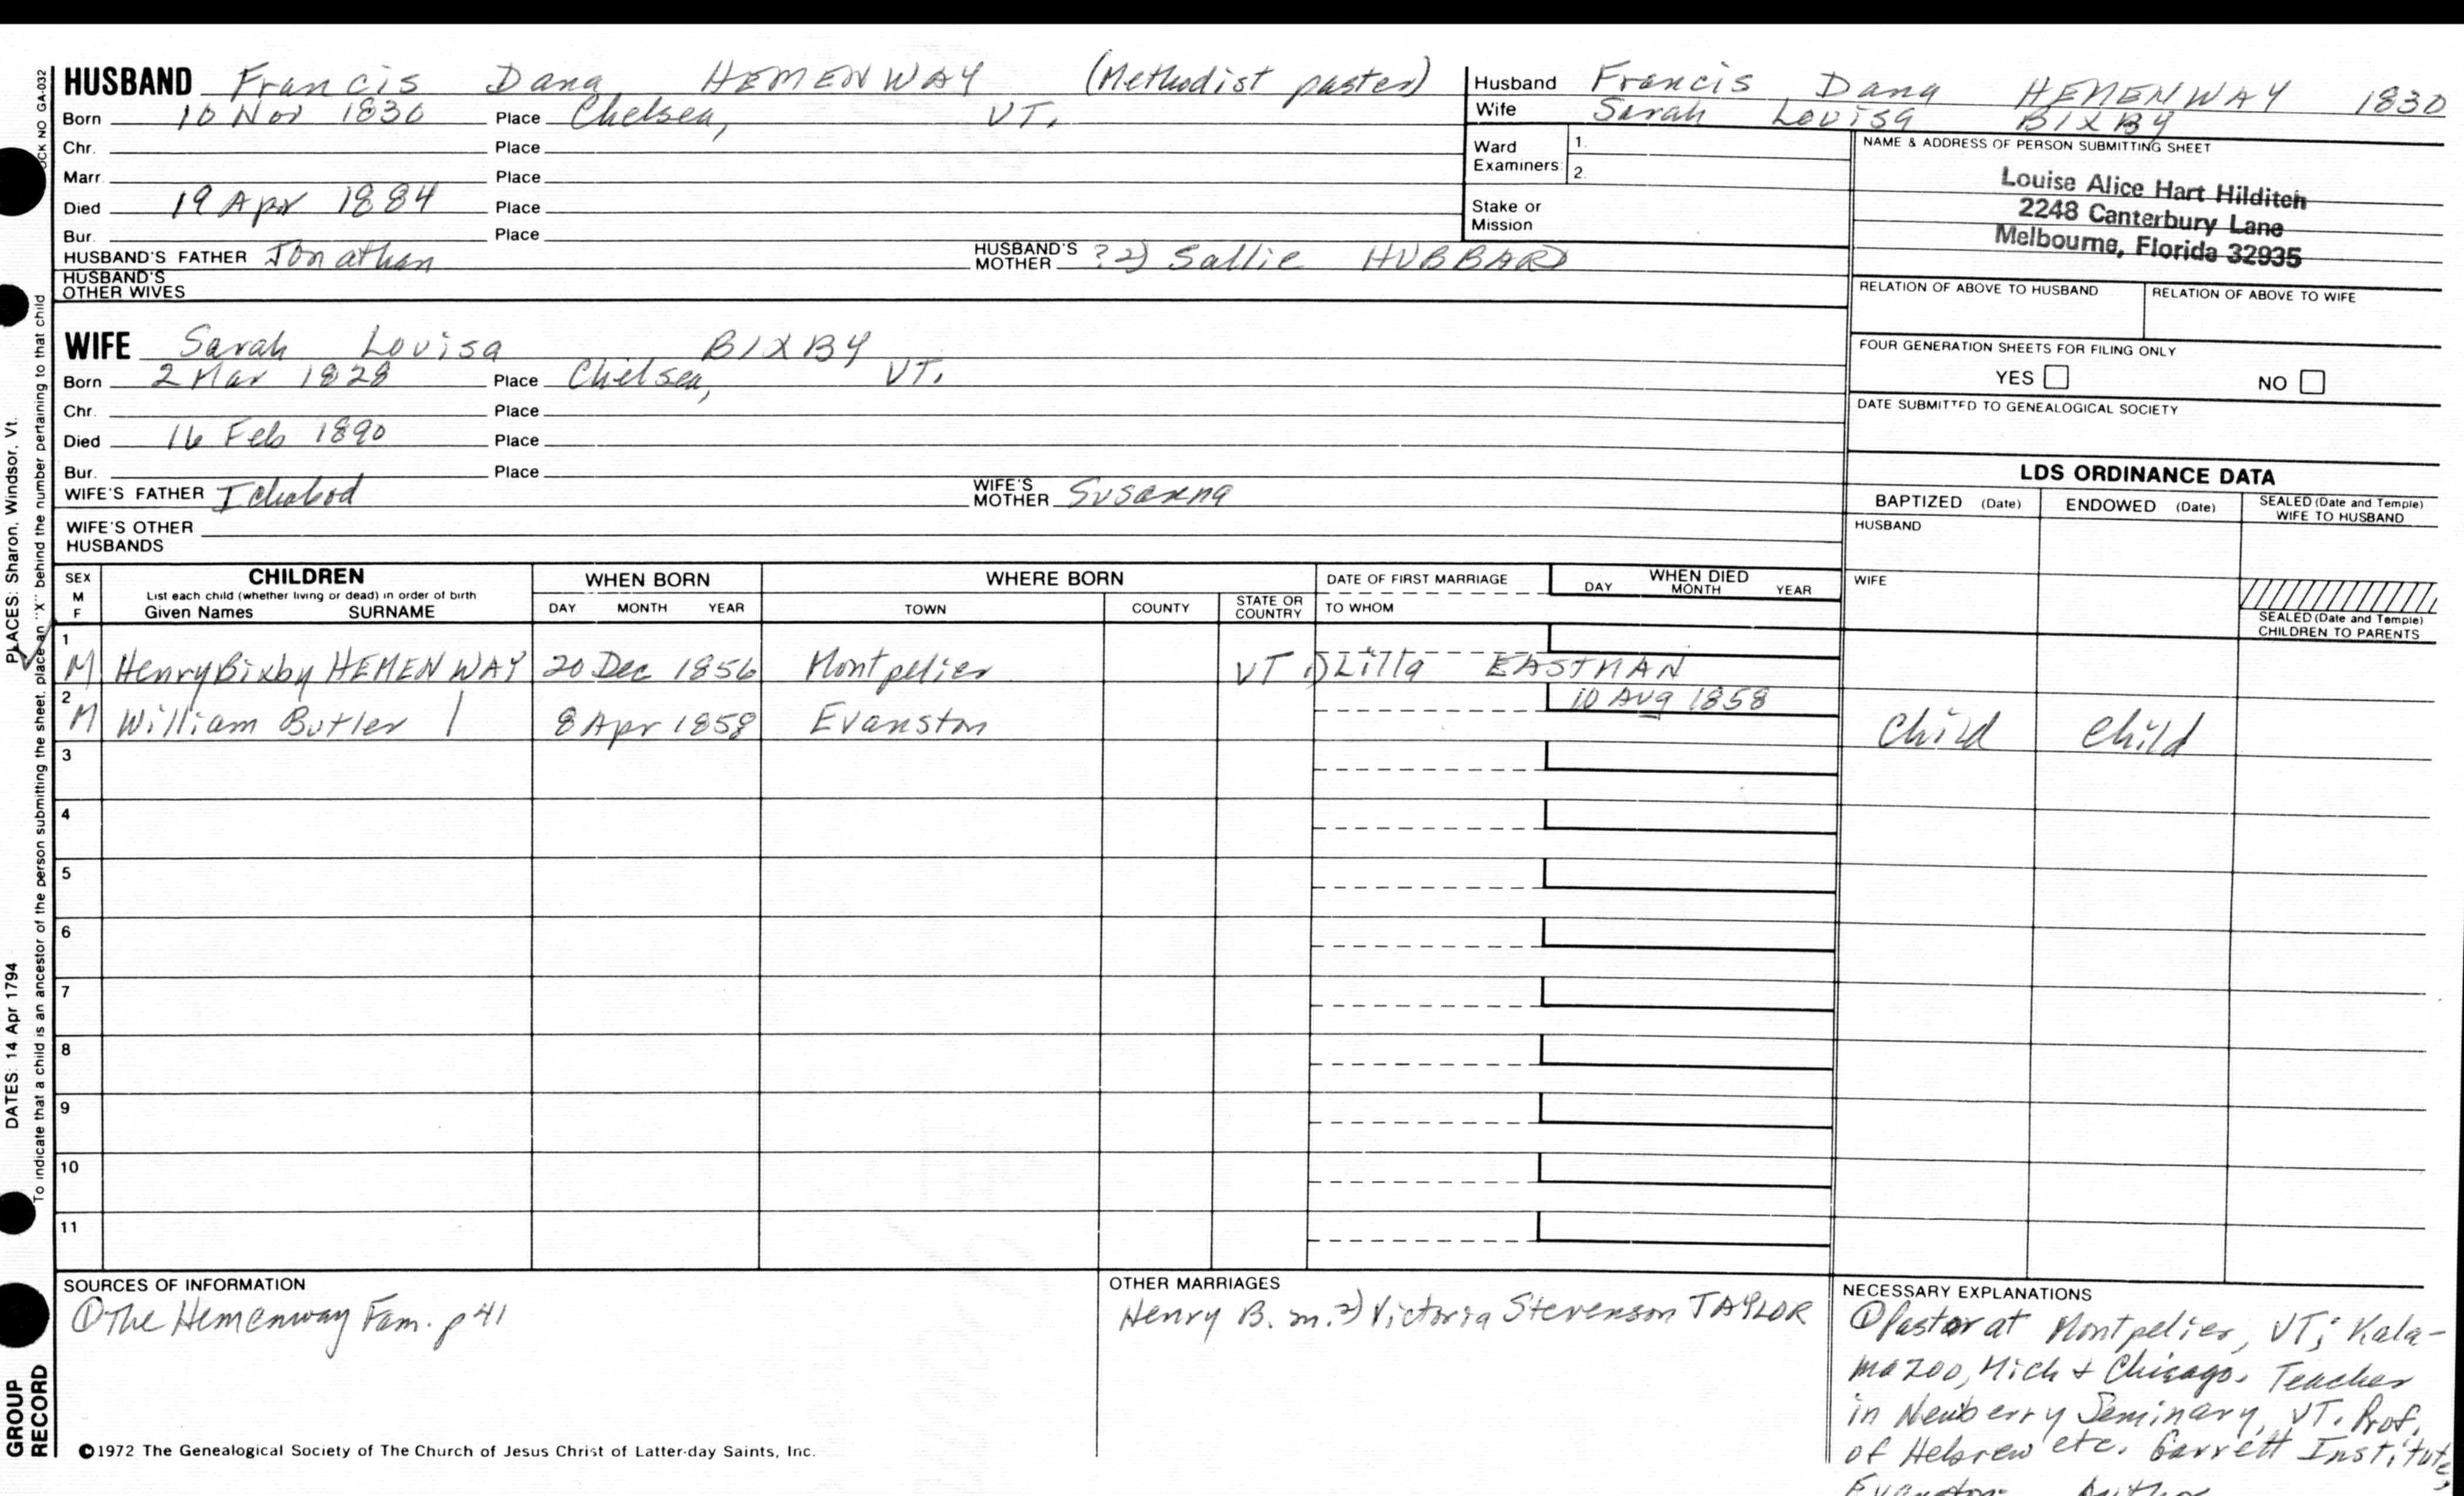 HUSBAND Francis Dana HEMENWAY (Methodist paster)
Born 10 Nov 1830 Place Chelsea, VT.
Chr. Place
Marr Place
Died 19 Apr 1884 Place
Bur. Place
HUSBAND'S FATHER Jonathan HUSBAND'S MOTHER ? 2) Sallie HUBBARD
HUSBAND'S OTHER WIVES
Husband Francis Dana HEMENWAY 1830
Wife Sarah Louisa BIXBY
Ward Examiners: 1.
2.
Stake or Mission
NAME & ADDRESS OF PERSON SUBMITTING SHEET
Louise Alice Hart Hilditch
2248 Canterbury Lane
Melbourne, Florida 32935
RELATION OF ABOVE TO HUSBAND RELATION OF ABOVE TO WIFE
FOUR GENERATION SHEETS FOR FILING ONLY
YES NO
DATE SUBMITTED TO GENEALOGICAL SOCIETY
WIFE Sarah Louisa BIXBY
Born 2 Mar 1828 Place Chelsea, VT.
Chr. Place
Died 16 Feb 1890 Place
Bur. Place
WIFE'S FATHER Ichabod WIFE'S MOTHER Susanna
WIFE'S OTHER HUSBANDS
LDS ORDINANCE DATA
BAPTIZED (Date) ENDOWED (Date) SEALED (Date and Temple) WIFE TO HUSBAND
HUSBAND
WIFE
SEALED (Date and Temple) CHILDREN TO PARENTS
SEX M F CHILDREN WHEN BORN WHERE BORN DATE OF FIRST MARRIAGE WHEN DIED
List each child (whether living or dead) in order of birth
Given Names SURNAME DAY MONTH YEAR TOWN COUNTY STATE OR COUNTRY TO WHOM DAY MONTH YEAR
1 M Henry Bixby HEMENWAY 20 Dec 1856 Montpelier VT 1) Lilla EASTMAN
2 M William Butler | 8 Apr 1858 Evanston 10 Aug 1858 Child Child
3
4
5
6
7
8
9
10
11
SOURCES OF INFORMATION
① The Hemenway Fam. p 41
OTHER MARRIAGES
Henry B. m. 2) Victoria Stevenson TAYLOR
NECESSARY EXPLANATIONS
① Pastor at Montpelier, VT; Kala-
mazoo, Mich + Chicago. Teacher
in Newberry Seminary, VT. Prof.
of Hebrew etc. Garrett Institute,
Evanston. Author
©1972 The Genealogical Society of The Church of Jesus Christ of Latter-day Saints, Inc.
OCK NO GA-032
To indicate that a child is an ancestor of the person submitting the sheet, place an "X" behind the number pertaining to that child
PLACES: Sharon, Windsor, Vt.
DATES: 14 Apr 1794
GROUP
RECORD